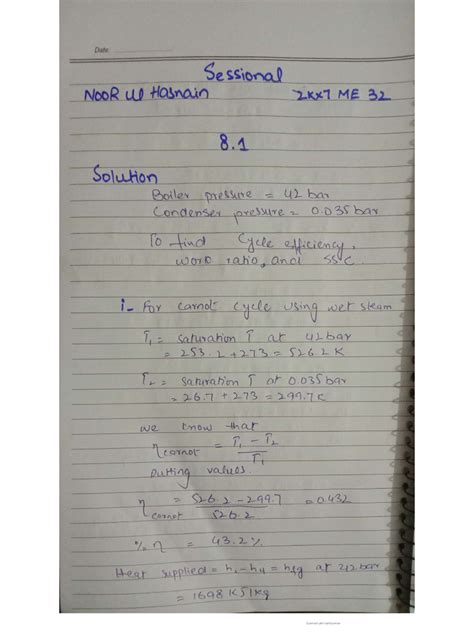 Date:
Sessional
NOOR Ul Hasnain 2KX7 ME 32
8.1
Solution
Boiler pressure = 42 bar
Condenser pressure = 0.035 bar
To find Cycle efficiency,
work ratio, and SSC.
i- For Carnot Cycle using wet steam
T₁ = saturation T at 42 bar
= 253.2 + 273 = 526.2 K
T₂ = saturation T at 0.035 bar
= 26.7 + 273 = 299.7 K
we know that
η carnot = T₁ - T₂ / T₁
putting values.
η carnot = 526.2 - 299.7 / 526.2 = 0.432
% η = 43.2 %
Heat supplied = h₁ - h₄ = hfg at 42 bar
= 1698 KJ/Kg